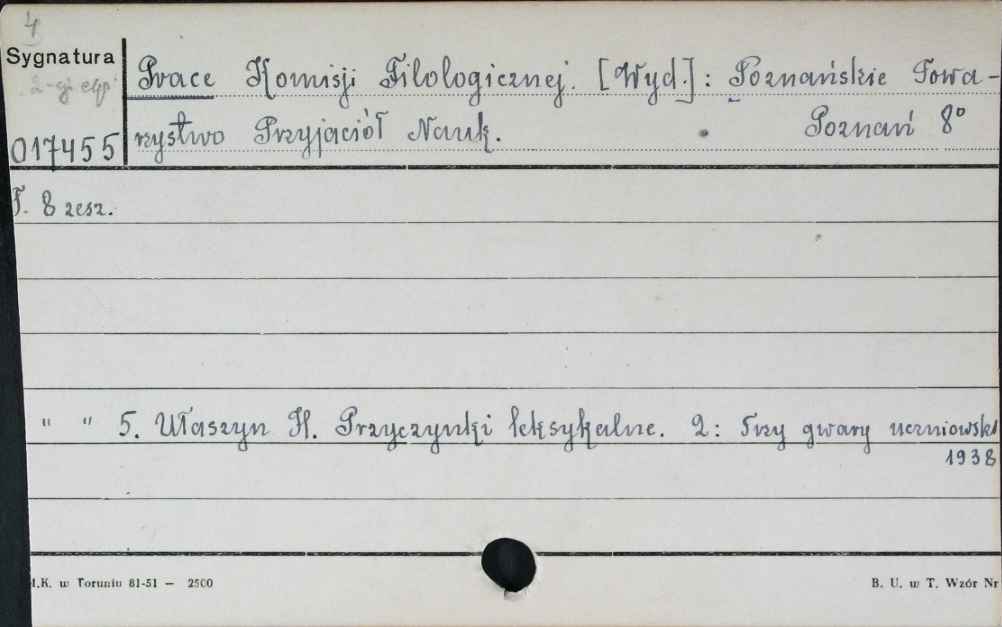 4
Sygnatura
2-gi egz
Prace Komisji Filologicznej. [Wyd.]: Poznańskie Towa-
017455 rzystwo Przyjaciół Nauk. Poznań 8°
T. 8 zesz.
" " 5. Ułaszyn H. Przyczynki leksykalne. 2: Trzy gwary uczniowsk
1938
.K. w Toruniu 81-51 — 2500 B. U. w T. Wzór Nr